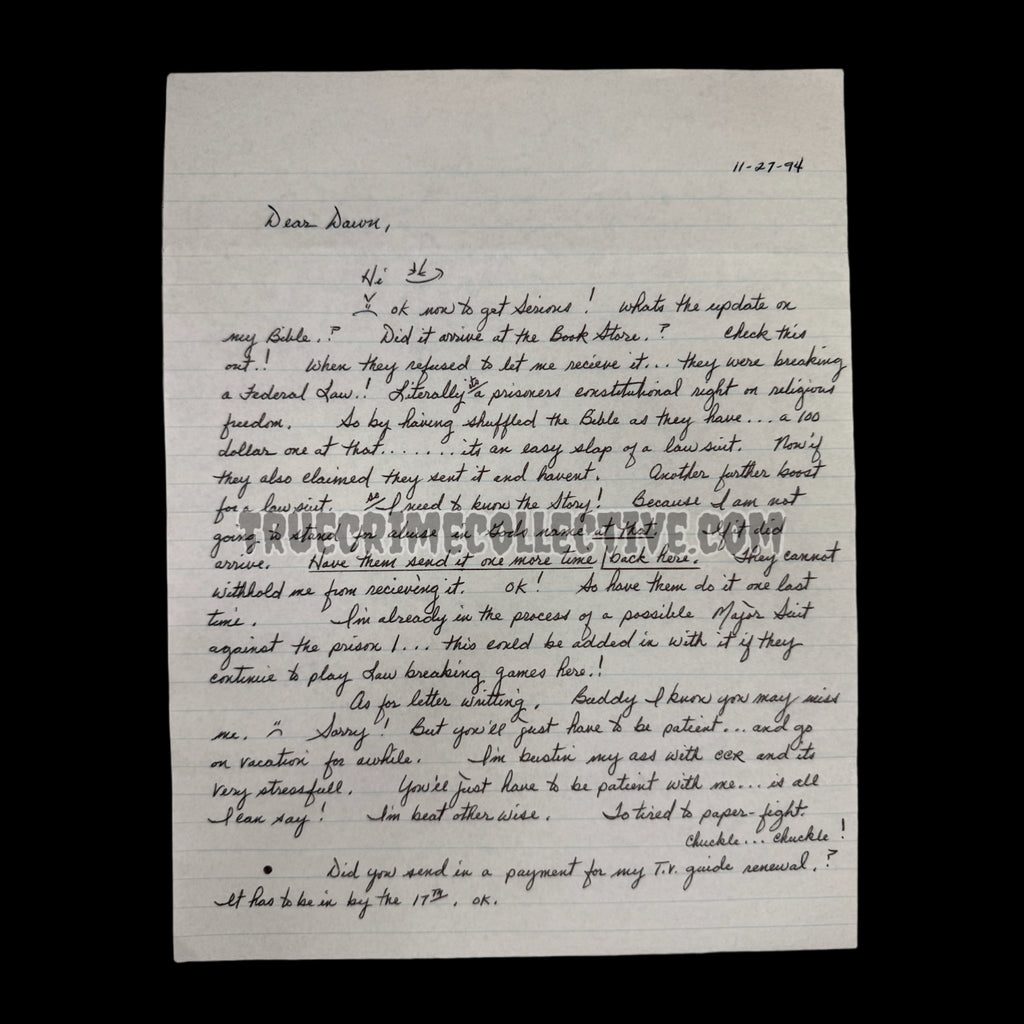 11-27-94
Dear Dawn,
Hi
ok now to get Serious! Whats the update on
my Bible.? Did it arrive at the Book Store.? Check this
out.! When they refused to let me recieve it... they were breaking
a Federal Law.! Literally a prisoners constitutional right on religious
freedom. So by having shuffled the Bible as they have... a 100
dollar one at that....... its an easy slap of a law suit. Now if
they also claimed they sent it and havent. Another further boost
for a law suit. I need to know the Story! Because I am not
going to stand for abuse in Gods name at that. If it did
TRUECRIMECOLLECTIVE.COM
arrive. Have them send it one more time back here. They cannot
withhold me from recieving it. OK! So have them do it one last
time. I'm already in the process of a possible Major Suit
against the prison!... this could be added in with it if they
continue to play Law breaking games here.!
As for letter writting. Buddy I know you may miss
me. Sorry! But you'll just have to be patient... and go
on vacation for awhile. I'm bustin my ass with CCR and its
very stressfull. You'll just have to be patient with me... is all
I can say! I'm beat other wise. To tired to paper-fight.
Chuckle... Chuckle!
Did you send in a payment for my T.V. guide renewal.?
It has to be in by the 17TH. OK.